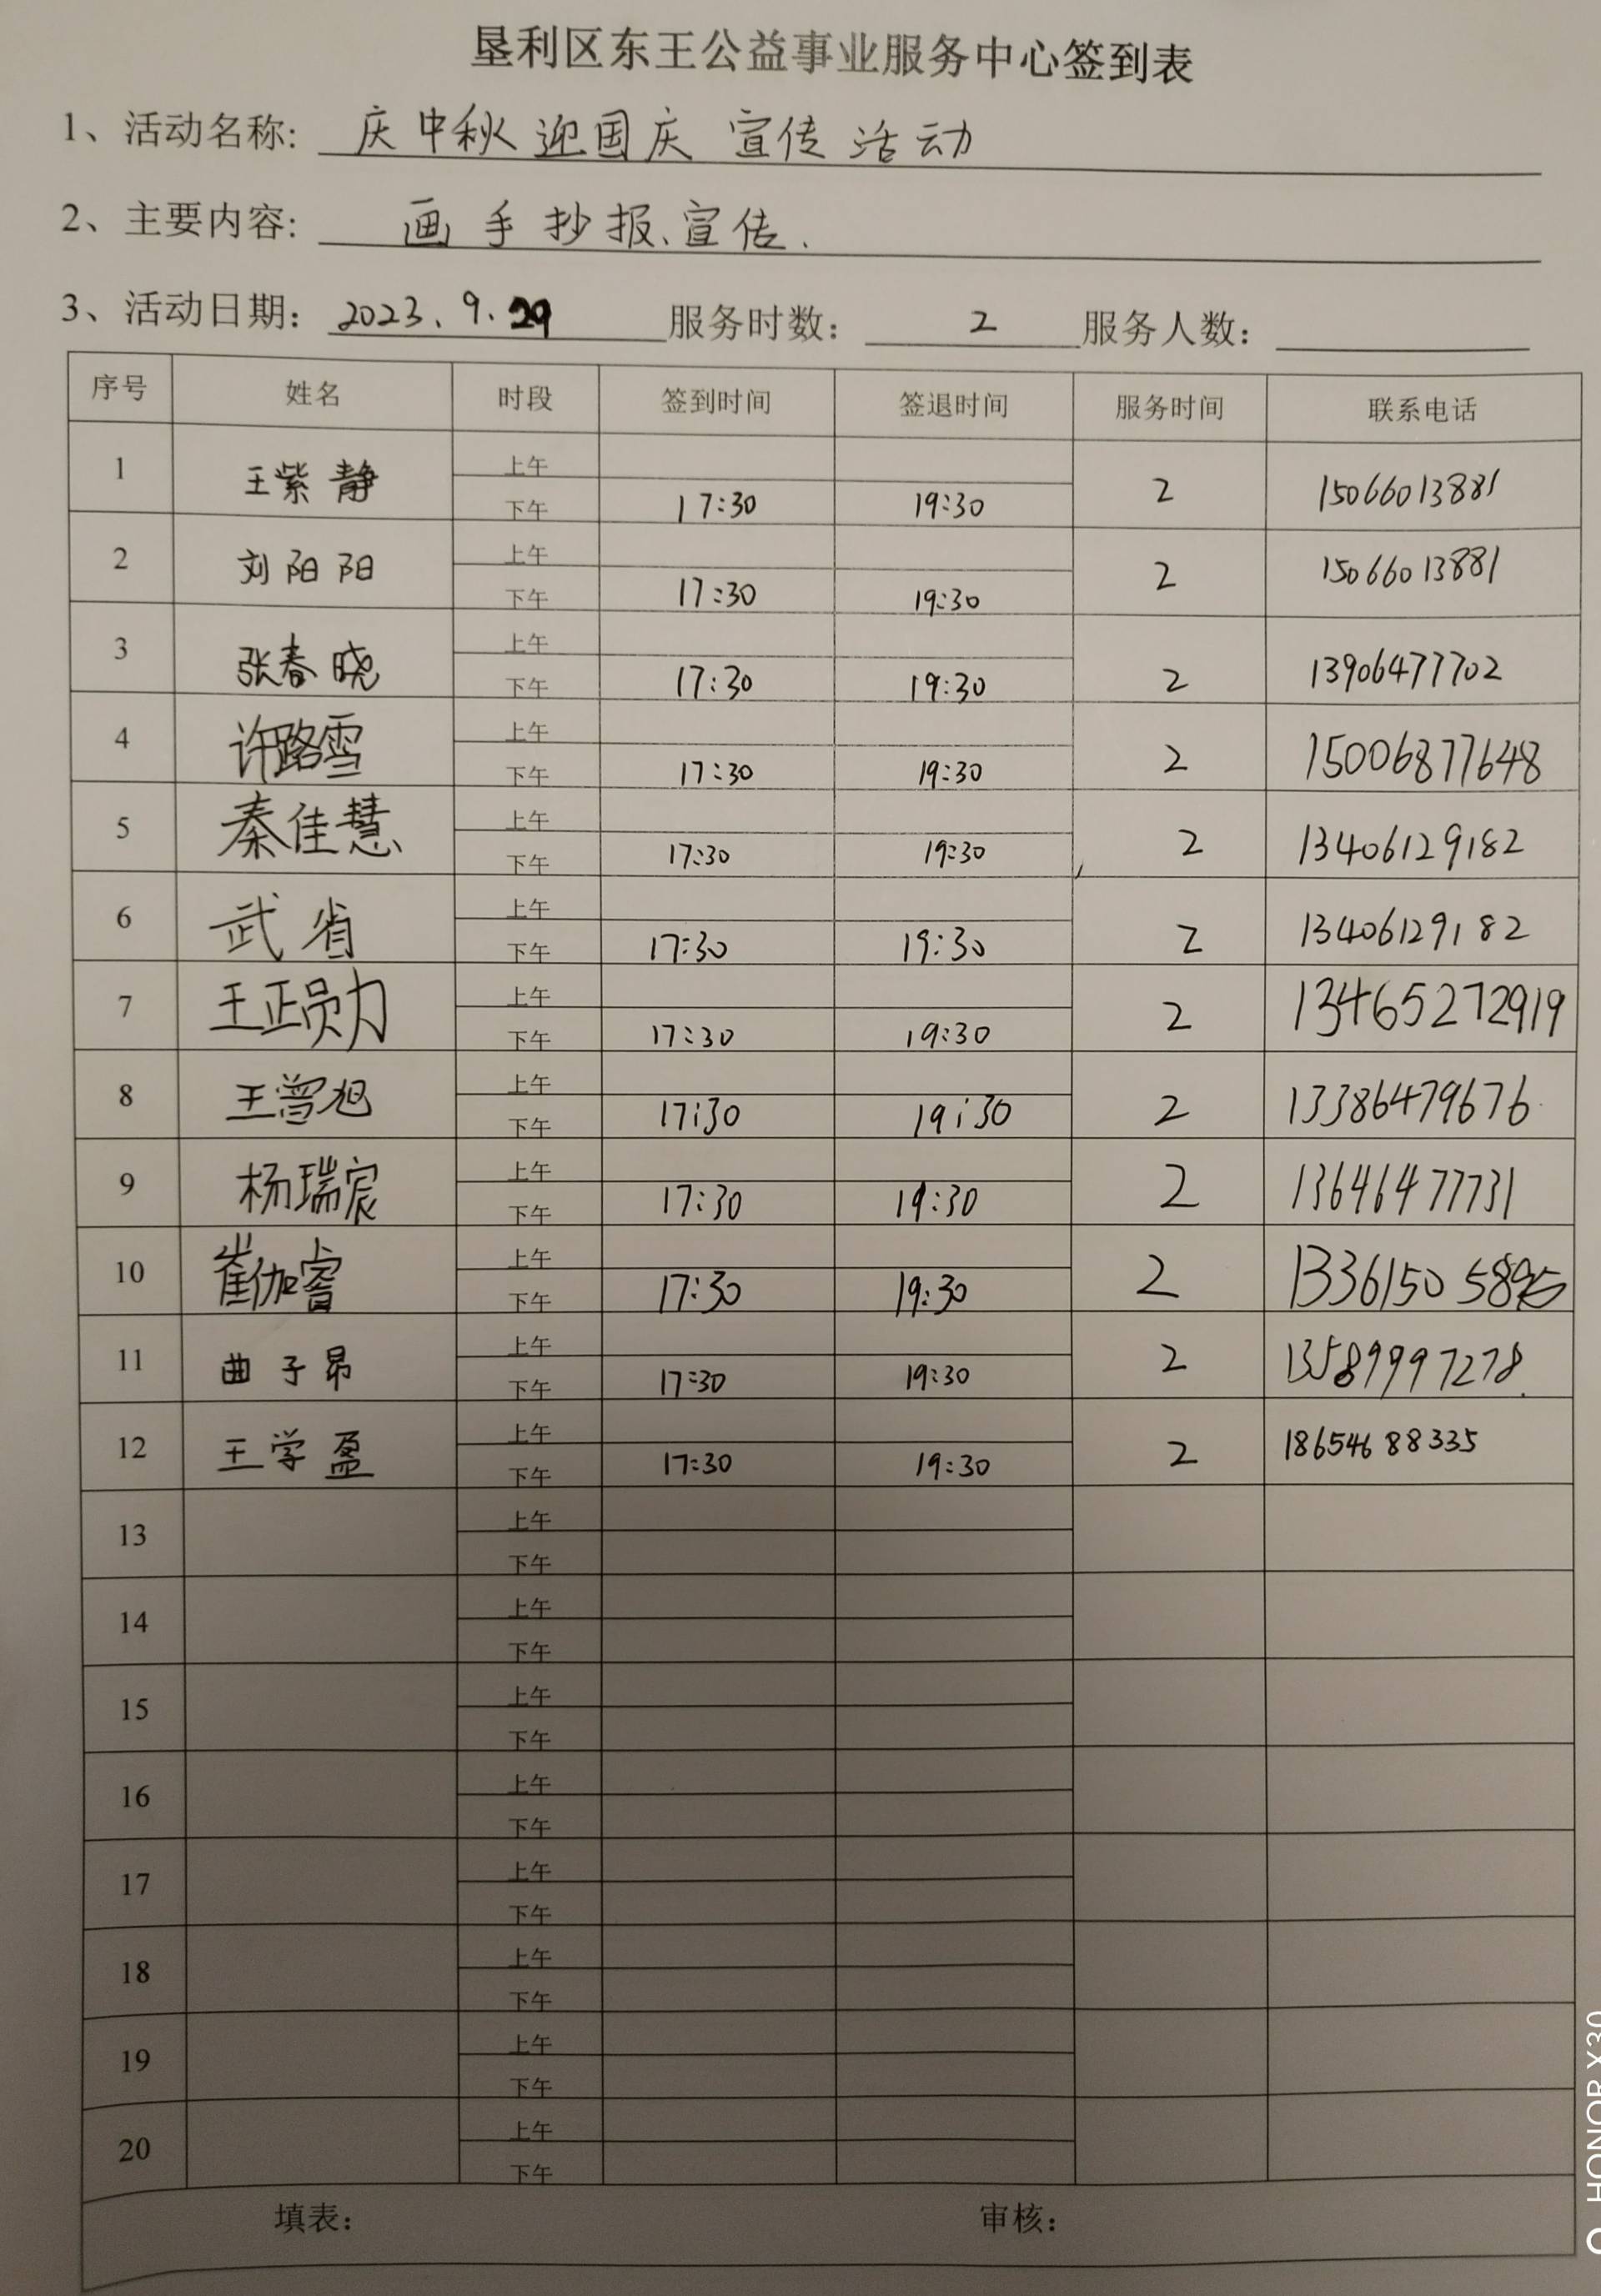 垦利区东王公益事业服务中心签到表
1、活动名称: 庆中秋迎国庆 宣传活动
2、主要内容: 画手抄报、宣传.
3、活动日期: 2023.9.29 服务时数: 2 服务人数:
序号 姓名 时段 签到时间 签退时间 服务时间 联系电话
1 王紫静 上午 2 15066013881
下午 17:30 19:30
2 刘阳阳 上午 2 15066013881
下午 17:30 19:30
3 张春晓 上午 2 13906477702
下午 17:30 19:30
4 许路雪 上午 2 15006877648
下午 17:30 19:30
5 秦佳慧 上午 2 13406129182
下午 17:30 19:30
6 武省 上午 2 13406129182
下午 17:30 19:30
7 王正勋 上午 2 13465272919
下午 17:30 19:30
8 王曾旭 上午 2 13386479676
下午 17:30 19:30
9 杨瑞宸 上午 2 13646477731
下午 17:30 19:30
10 崔伽睿 上午 2
下午 17:30 19:30
11 曲子昂 上午 2 13589997278
下午 17:30 19:30
12 王学盈 上午 2 18654688335
下午 17:30 19:30
13 上午
下午
14 上午
下午
15 上午
下午
16 上午
下午
17 上午
下午
18 上午
下午
19 上午
下午
20 上午
下午
填表: 审核:
HONOR X30